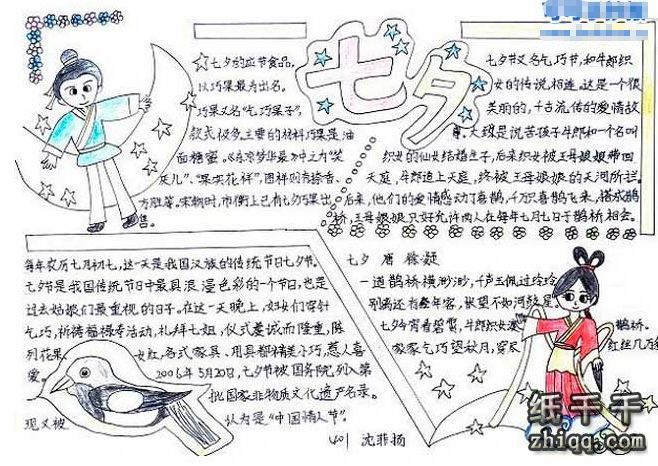 七夕
七夕的应节食品,
以巧果最为出名。
巧果又名"乞巧果子",
款式极多。主要的材料巧果是油
面糖蜜。《东京梦华录》中之为"笑
厌儿"、"果实花样",图样则有捺香、
方胜等。宋朝时,市街上已有七夕巧果出
售。
七夕节又名乞巧节,和牛郎织
女的传说相连。这是一个很
美丽的,千古流传的爱情故
事。大致是说苦孩子牛郎和一个名叫
织女的仙女结婚生子,后来织女被王母娘娘带回
天庭,牛郎追上天庭,终被王母娘娘的天河所拦。
后来,他们的爱情感动了喜鹊,千万只喜鹊飞来,搭成鹊
桥,王母娘娘只好允许两人在每年七月七日于鹊桥相会。
每年农历七月初七,这一天是我国汉族的传统节日七夕节。
七夕节是我国传统节日中最具浪漫色彩的一个节日,也是
过去姑娘们最重视的日子。在这一天晚上,妇女们穿针
乞巧,祈祷福禄寿活动,礼拜七姐,仪式虔诚而隆重,陈
列花果 女红,各式家具、用具都精美小巧、惹人喜
爱。 2006年5月20日,七夕节被国务院列入第
一批国家非物质文化遗产名录。
现又被 认为是"中国情人节"。
七夕 唐 徐凝
一道鹊桥横渺渺,千声玉佩过玲玲
别离还有经年客,怅望不如河鼓星。
七夕今宵看碧霄,牛郎织女渡 鹊桥。
家家乞巧望秋月,穿尽 红丝几万条
401 沈菲扬
纸千千
zhiqq.com